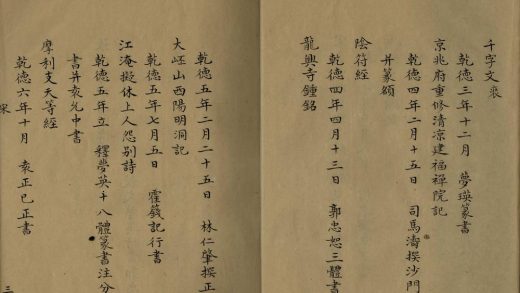 千字文 裘
乾德三年十二月 夢瑛篆書
京兆府重修清凉建福禪院記
乾德四年二月十五日 司馬濤撰沙門
并篆額
陰符經
乾德四年四月十三日 郭忠恕三體書
龍興寺鍾銘
乾德五年二月二十五日 林仁肇撰正
大岯山西陽明洞記
乾德五年七月五日 霍籛記行書
江淹擬休上人怨别詩
乾德五年立 釋夢英十八體篆書注分
書并袁允中書
摩利支天等經
乾德六年十月 袁正己正書
宋
三